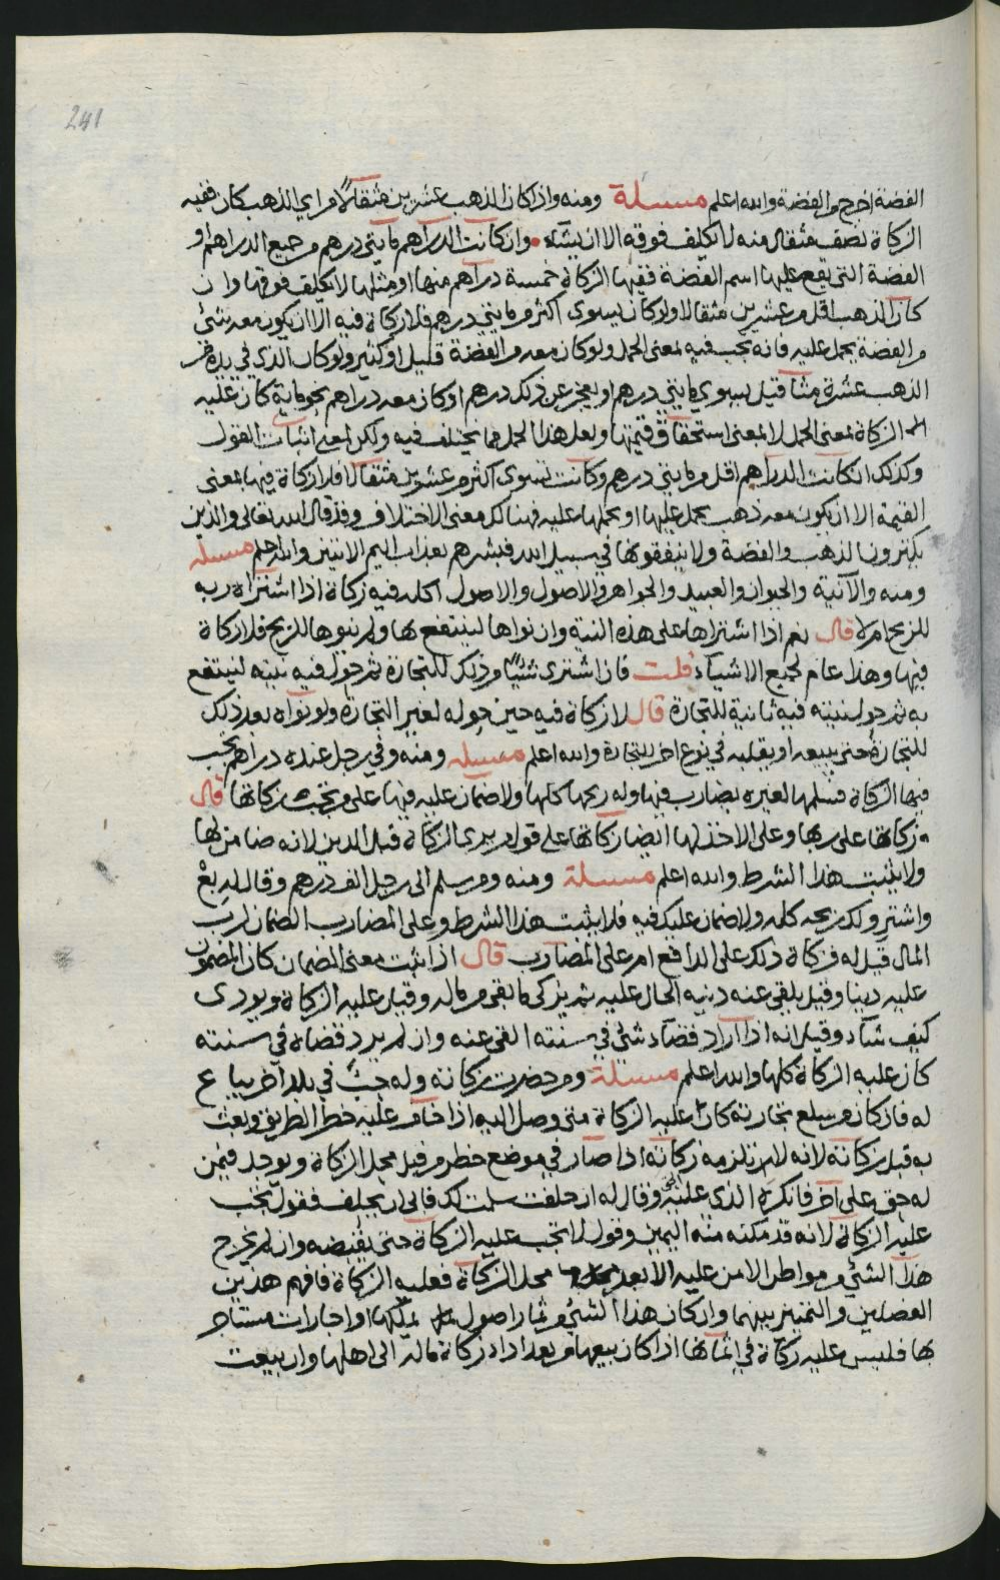 241
الفضة اخرج من الفضة والله اعلم مسئلة ومنه واذا كان الذهب عشرين مثقالا من اي الذهب كان ففيه
الزكاة نصف مثقال منه لا يكلف فوقه الا ان يشاء وان كانت الدراهم مايتي درهم من جميع الدراهم او
الفضة التي يقع عليها اسم الفضة ففيها الزكاة خمسة دراهم منها او مثلها لا يكلف فوقها وان
كان الذهب اقل من عشرين مثقالا ولو كان يسوى اكثر من مايتي درهم فلا زكاة فيه الا ان يكون معه شئ
من الفضة يحمل عليه فانه يجب فيه لمعنى الحمل ولو كان معه من الفضة قليل او كثير ولو كان الذي في يده من
الذهب عشرة مثاقيل يسوي مايتي درهم او يعجز عن ذلك درهم او كان معه دراهم نحو ماية كان عليه
الزكاة لمعنى الحمل لا لمعنى استحقاق قيمتها ولعل هذا الحمل مما يختلف فيه ولكن لمعنى اثبات القول
وكذلك ان كانت الدراهم اقل من مايتي درهم وكانت تسوى اكثر من عشرين مثقالا فلا زكاة فيها بمعنى
القيمة الا ان يكون معه ذهب يحمل عليها او يحملها عليه فهنالك معنى الاختلاف وقد قال الله تعالى والذين
يكنزون الذهب والفضة ولا ينفقونها في سبيل الله فبشرهم بعذاب اليم الايتين والله اعلم مسئله
ومنه والآنية والحيوان والعبيد والجواهر والاصول والاصول اكله فيه زكاة اذا اشتراه ربه
للربح ام لا قال نعم اذا اشتراها على هذه النية وان نواها لينتفع بها ولم ينوها للربح فلا زكاة
فيها وهذا عام لجميع الاشياء قلت فان اشترى شيئا من ذلك للتجارة ثم حول فيه نيته لينتفع
به ثم حول نيته فيه ثانية للتجارة قال لا زكاة فيه حين حوله لغير التجارة ولو نواه بعد ذلك
للتجارة حتى يبيعه او يقلبه في نوع اخر للتجارة والله اعلم مسئله ومنه وفي رجل عنده دراهم تجب
فيها الزكاة فسلمها لغيره يضارب فيها وله ربحها كلها ولا ضمان عليه فيها على من تجب زكاتها قال
زكاتها على ربها وعلى الاخذ لها ايضا زكاتها على قول من يرى الزكاة قبل الدين لانه ضامن لها
ولا يثبت هذا الشرط والله اعلم مسئلة ومنه ومن سلم الى رجل الف درهم وقال له بع
واشتر ولك ربحه كله ولا ضمان عليك فيه فلا يثبت هذا الشرط وعلى المضارب الضمان لرب
المال قيل له فزكاة ذلك على الدافع ام على المضارب قال اذا ثبت معنى الضمان كان المضمون
عليه دينا وقيل يلقى عنه دينه الحال عليه ثم يزكي ما بقي من ماله وقيل عليه الزكاة ويودى
كيف شاء وقيل انه اذا اراد قضاء شئ في سنته القي عنه وان لم يرد قضاه في سنته
كان عليه الزكاة كلها والله اعلم مسئلة ومن حضرت زكاته وله حب في بلد آخر يباع
له فان كان من سلع تجارته كان عليه الزكاة متى وصل اليه اذا خاف عليه خطر الطريق وبعث
به قبل زكاته لانه لم تلزمه زكاته اذا صار في موضع خطر من قبل محل الزكاة ويوجد فيمن
له حق على آخر فانكره الذي عليه وقال له ان حلفت سلمت لك فابى ان يحلف فقول تجب
عليه الزكاة لانه قد مكنه منه اليمين وقول لا تجب عليه الزكاة حتى يقبضه وان لم يخرج
هذا الشئ من مواطن الامن عليه الا بعد محل الزكاة فعليه الزكاة فافهم هذين
الفصلين والتمييز بينهما وان كان هذا الشئ من ثمار اصول يملكها او اجارات مستاجر
بها فليس عليه زكاة في اثمانها اذا كان بيعها من بعد اداء زكاة ماله الى اهلها وان بيعت